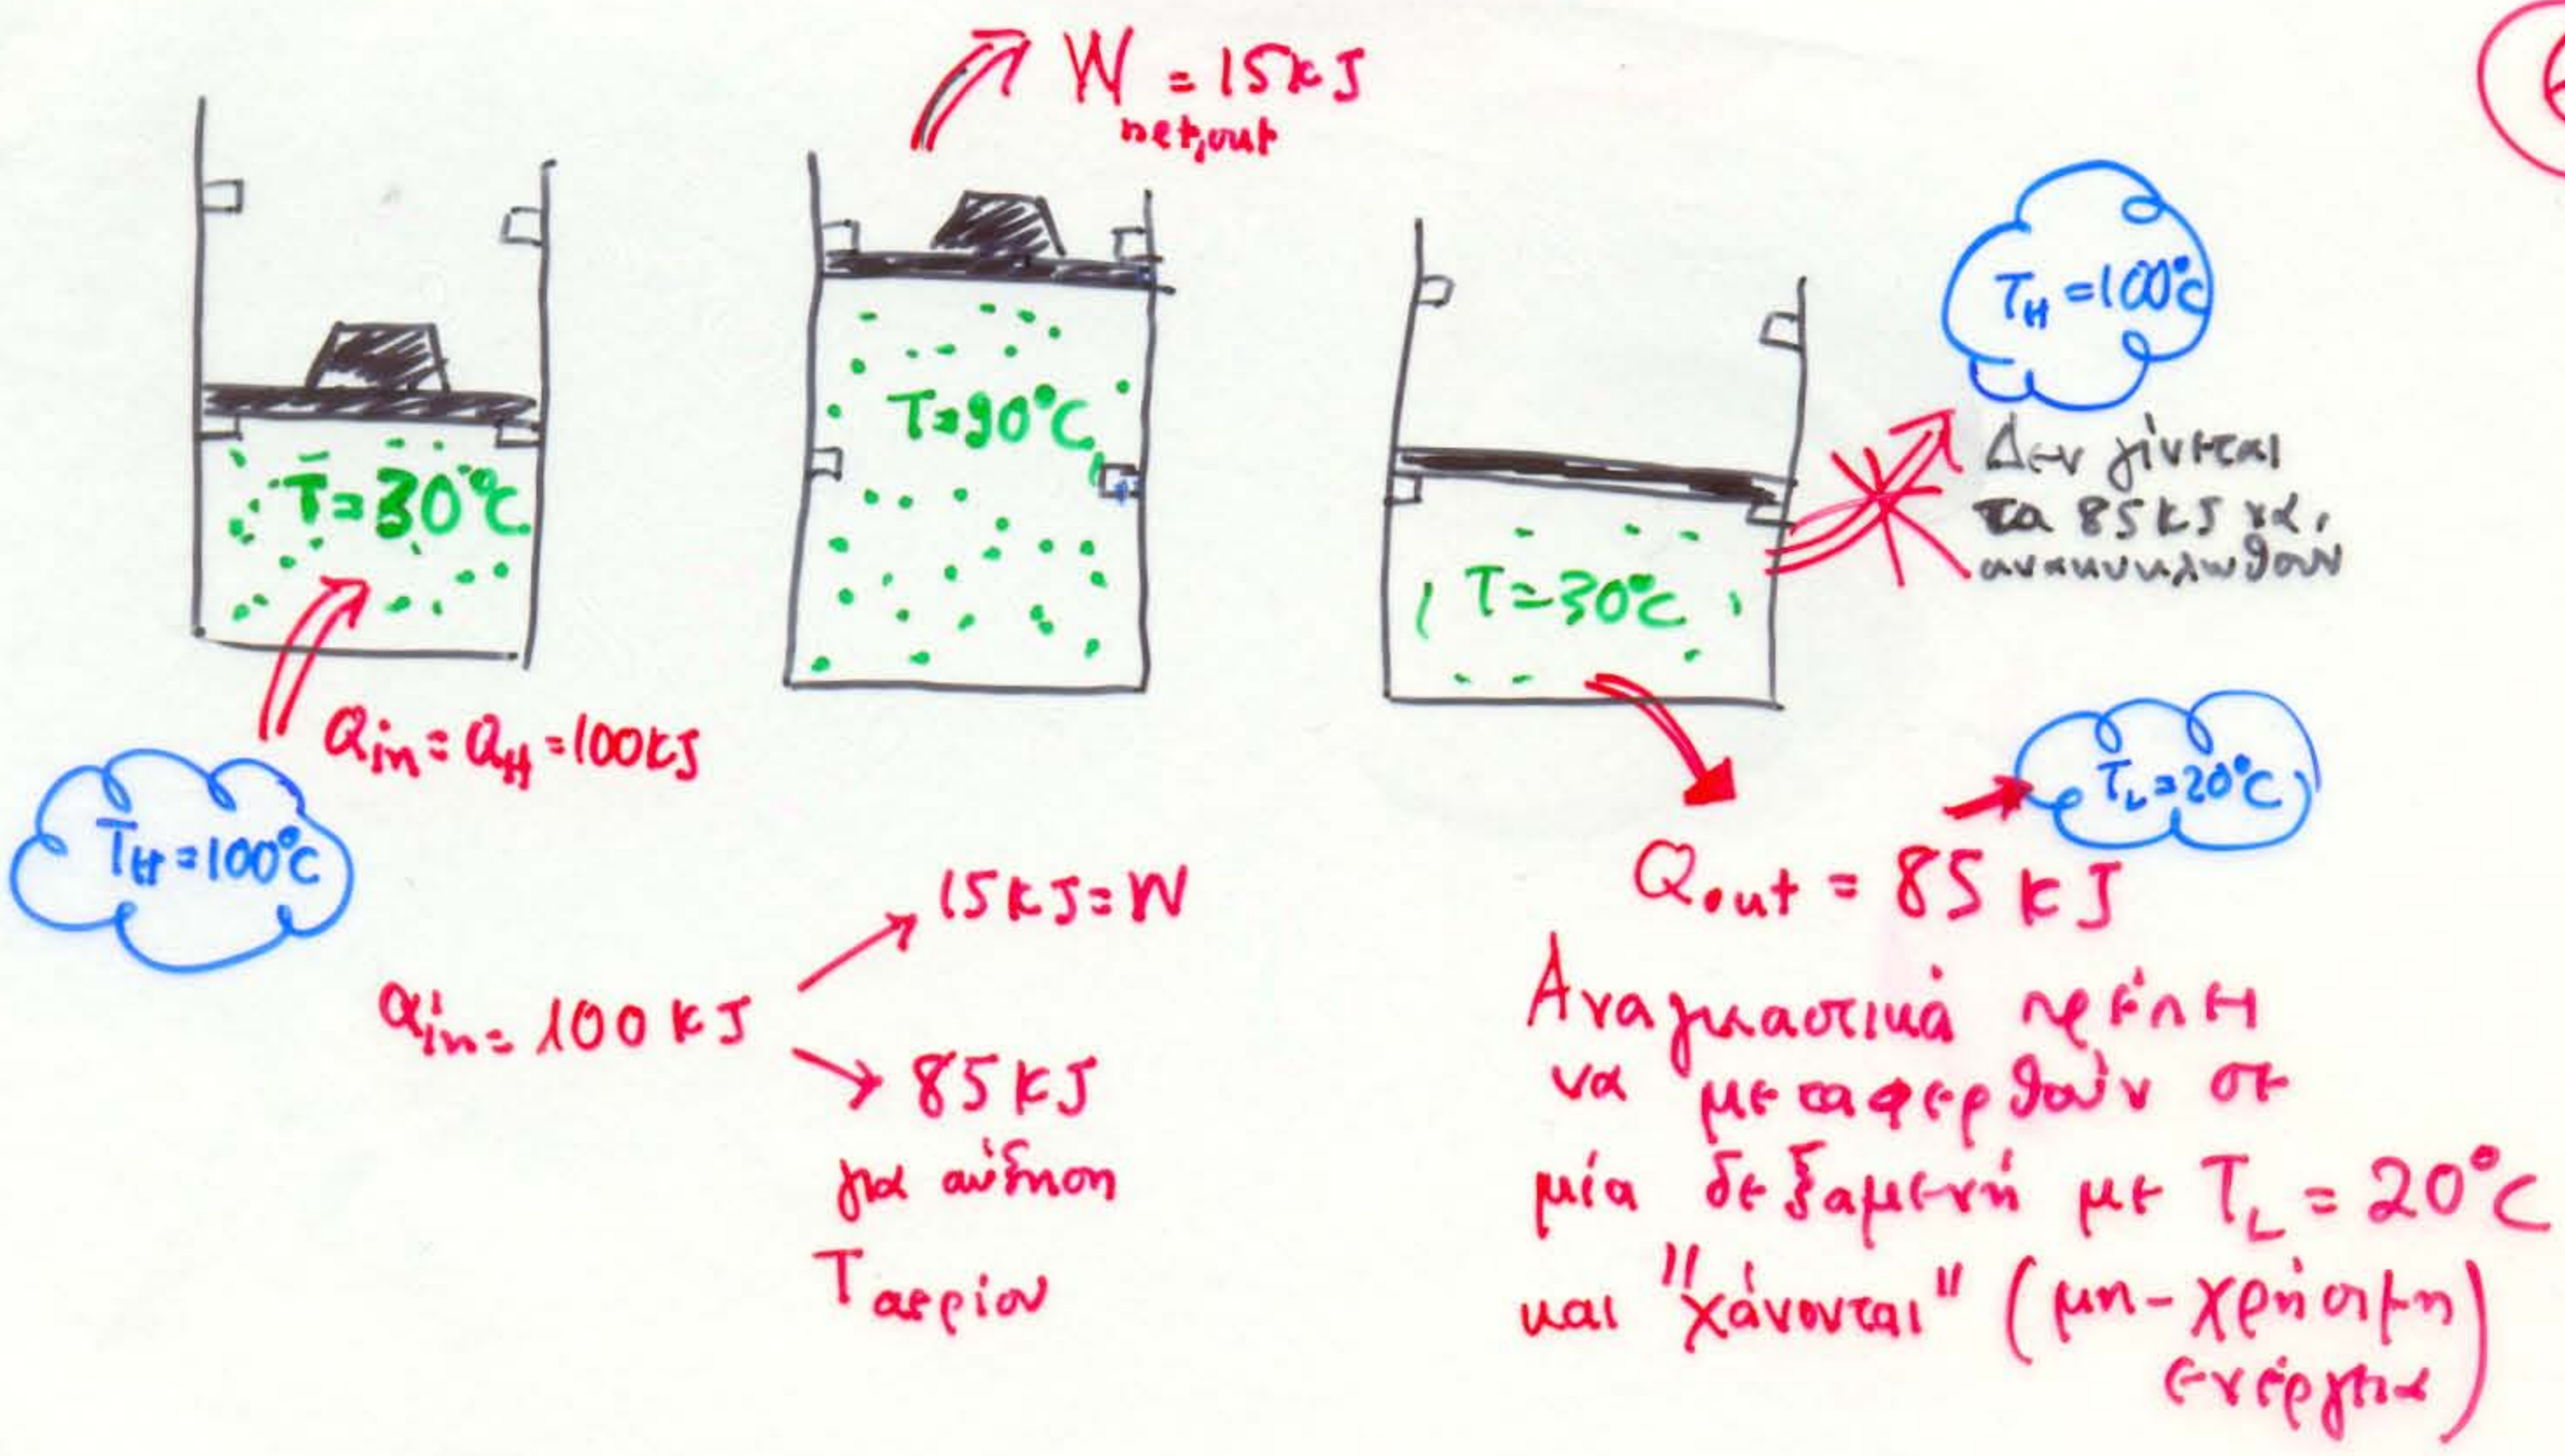 W = 15kJ
net,out
T=30°C
T=90°C
T_H=100°C
Δεν γίνεται
τα 85kJ να
ανακυκλωθούν
T=30°C
Q_in = Q_H = 100kJ
T_H=100°C
T_L=20°C
Q_out = 85 kJ
15kJ=W
Q_in = 100 kJ
85kJ
για αύξηση
T αερίου
Αναγκαστικά πρέπει
να μεταφερθούν σε
μία δεξαμενή με T_L = 20°C
και "χάνονται" (μη-χρήσιμη
ενέργεια)